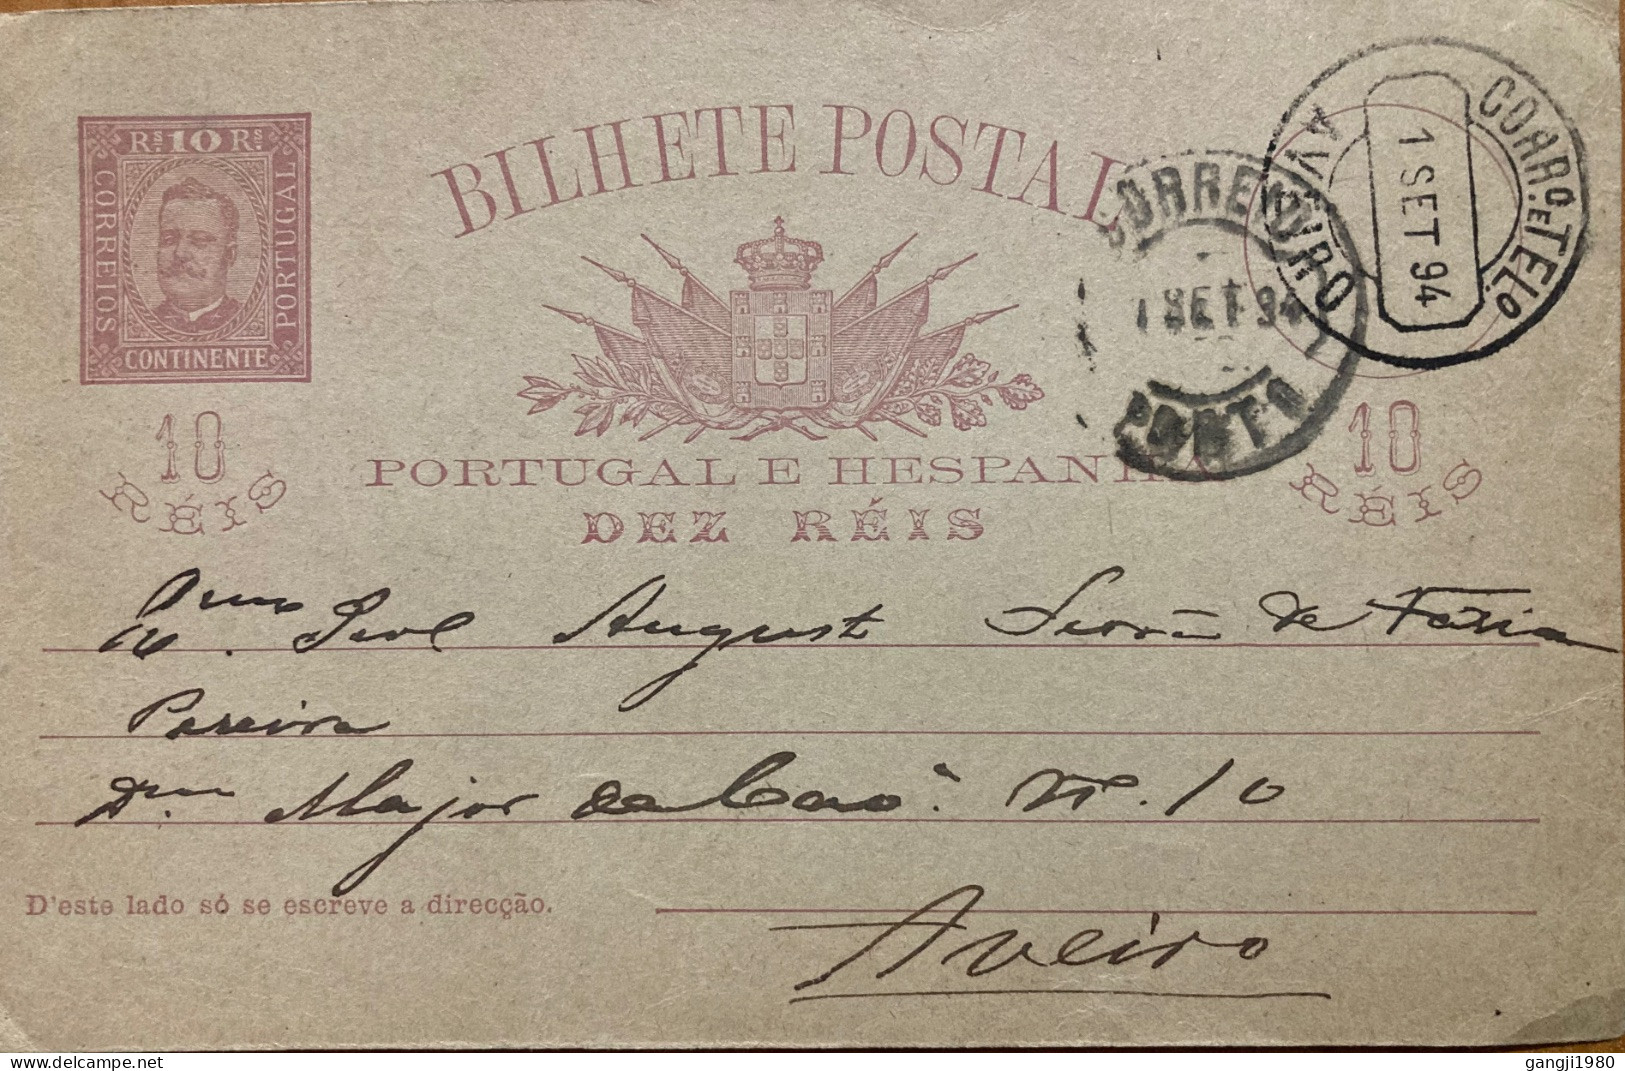 BILHETE POSTAL
Rs 10 Rs
CORREIOS
PORTUGAL
CONTINENTE
10
RÉIS
PORTUGAL E HESPANHA
DEZ RÉIS
10
RÉIS
CORREIO
1 SET 94
PORTO
CORRO. E TELO.
1 SET 94
AVEIRO
August de Faria
Pereira
Major de Cao. Nº. 10
D'este lado só se escreve a direcção.
Aveiro
delcampe.net
gangji1980